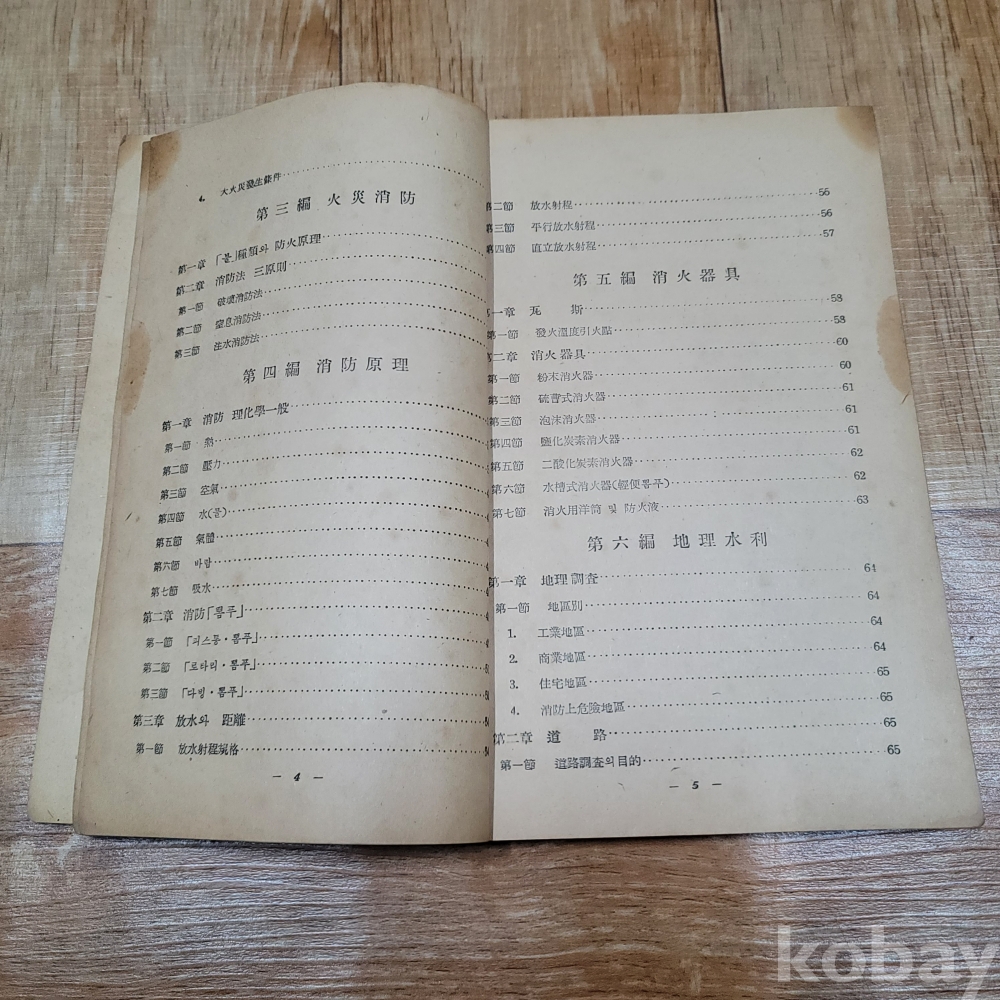 4. 大火災發生條件
第三編 火災消防
第一章 「불」種類와 防火原理
第二章 消防法 三原則
第一節 破壞消防法
第二節 窒息消防法
第三節 注水消防法
第四編 消防原理
第一章 消防 理化學一般
第一節 熱
第二節 壓力
第三節 空氣
第四節 水(물)
第五節 氣體
第六節 바람
第七節 吸水
第二章 消防「폼푸」
第一節 「피스톤・폼푸」
第二節 「로타리・폼푸」
第三節 「다빙・폼푸」
第三章 放水와 距離
第一節 放水射程規格
— 4 —
第二節 放水射程 56
第三節 平行放水射程 56
第四節 直立放水射程 57
第五編 消火器具
第一章 瓦 斯 58
第一節 發火溫度引火點 58
第二章 消火器具 60
第一節 粉末消火器 60
第二節 硫曹式消火器 61
第三節 泡沫消火器 61
第四節 鹽化炭素消火器 61
第五節 二酸化炭素消火器 62
第六節 水槽式消火器(輕便폼푸) 62
第七節 消火用洋筒 및 防火液 63
第六編 地理水利
第一章 地理調査 64
第一節 地區別 64
1. 工業地區 64
2. 商業地區 64
3. 住宅地區 65
4. 消防上危險地區 65
第二章 道 路 65
第一節 道路調査의目的 65
— 5 —
kobay